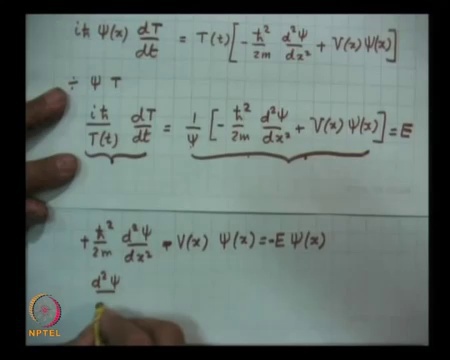 iħ Ψ(x) dT/dt = T(t) [ -ħ²/2m d²Ψ/dx² + V(x) Ψ(x) ]
÷ Ψ T
iħ/T(t) dT/dt = 1/Ψ [ -ħ²/2m d²Ψ/dx² + V(x) Ψ(x) ] = E
+ ħ²/2m d²Ψ/dx² - V(x) Ψ(x) = -E Ψ(x)
d²Ψ
NPTEL